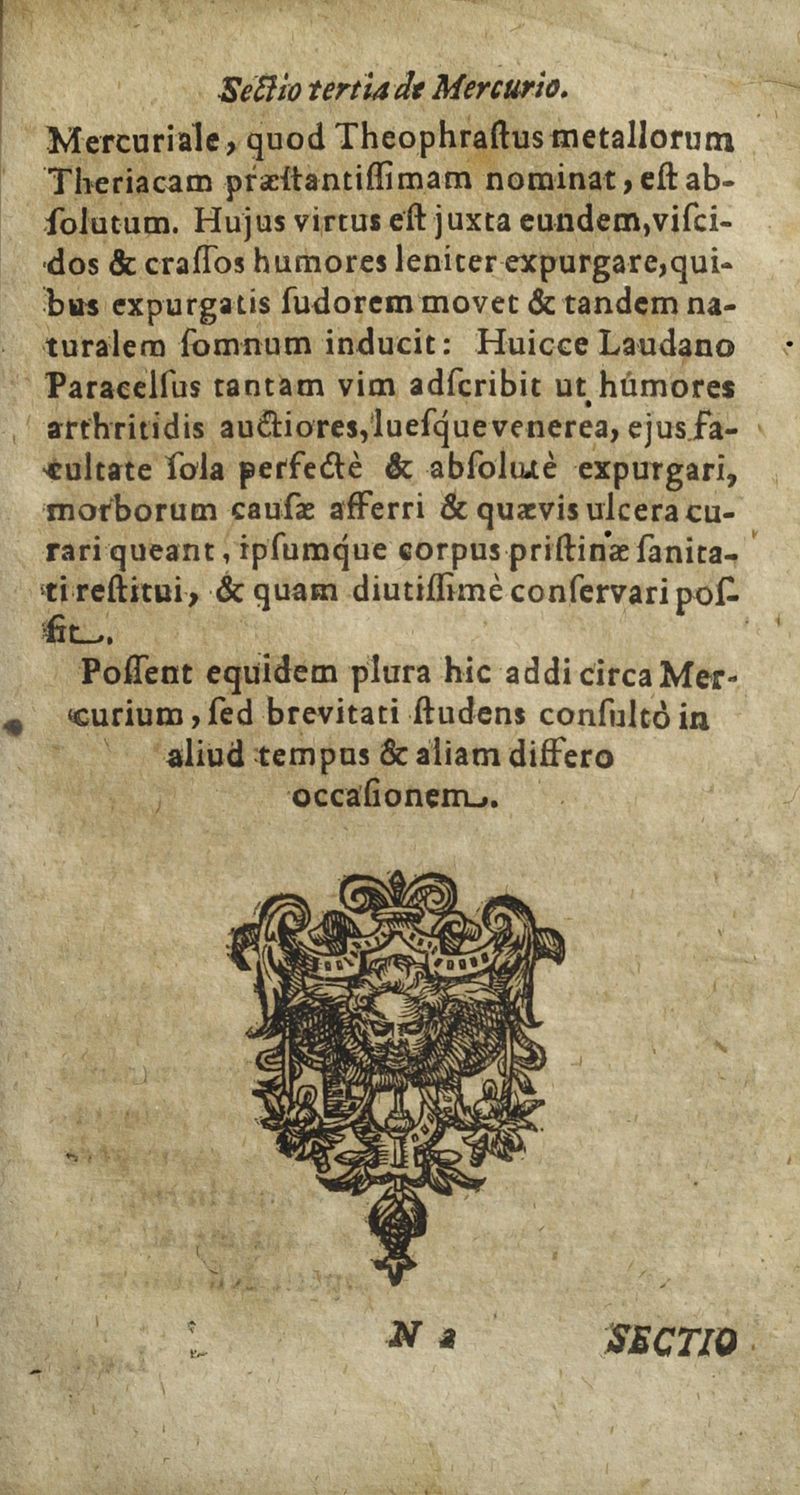 Sectio tertia de Mercurio.
Mercuriale, quod Theophraſtus metallorum
Theriacam præſtantiſſimam nominat, eſt ab-
ſolutum. Hujus virtus eſt juxta eundem, viſci-
dos & craſſos humores leniter expurgare, qui-
bus expurgatis ſudorem movet & tandem na-
turalem ſomnum inducit: Huicce Laudano
Paracelſus tantam vim adſcribit ut humores
arthritidis auctiores, lueſque venerea, ejus fa-
cultate ſola perfectè & abſolutè expurgari,
morborum cauſæ afferri & quævis ulcera cu-
rari queant, ipſumque corpus priſtinæ ſanita-
ti reſtitui, & quam diutiſſimè conſervari poſ-
ſit.
Poſſent equidem plura hic addi circa Mer-
curium, ſed brevitati ſtudens conſultò in
aliud tempus & aliam differo
occaſionem.
N 2 SECTIO